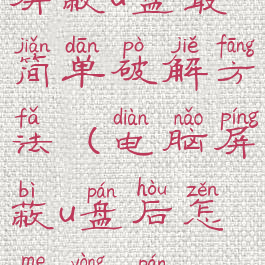 屏蔽u盘最
jiǎn dān pò jiě fāng
简单破解方
fǎ diàn nǎo píng
法（电脑屏
bì pán hòu zěn
蔽u盘后怎
me yòng pán